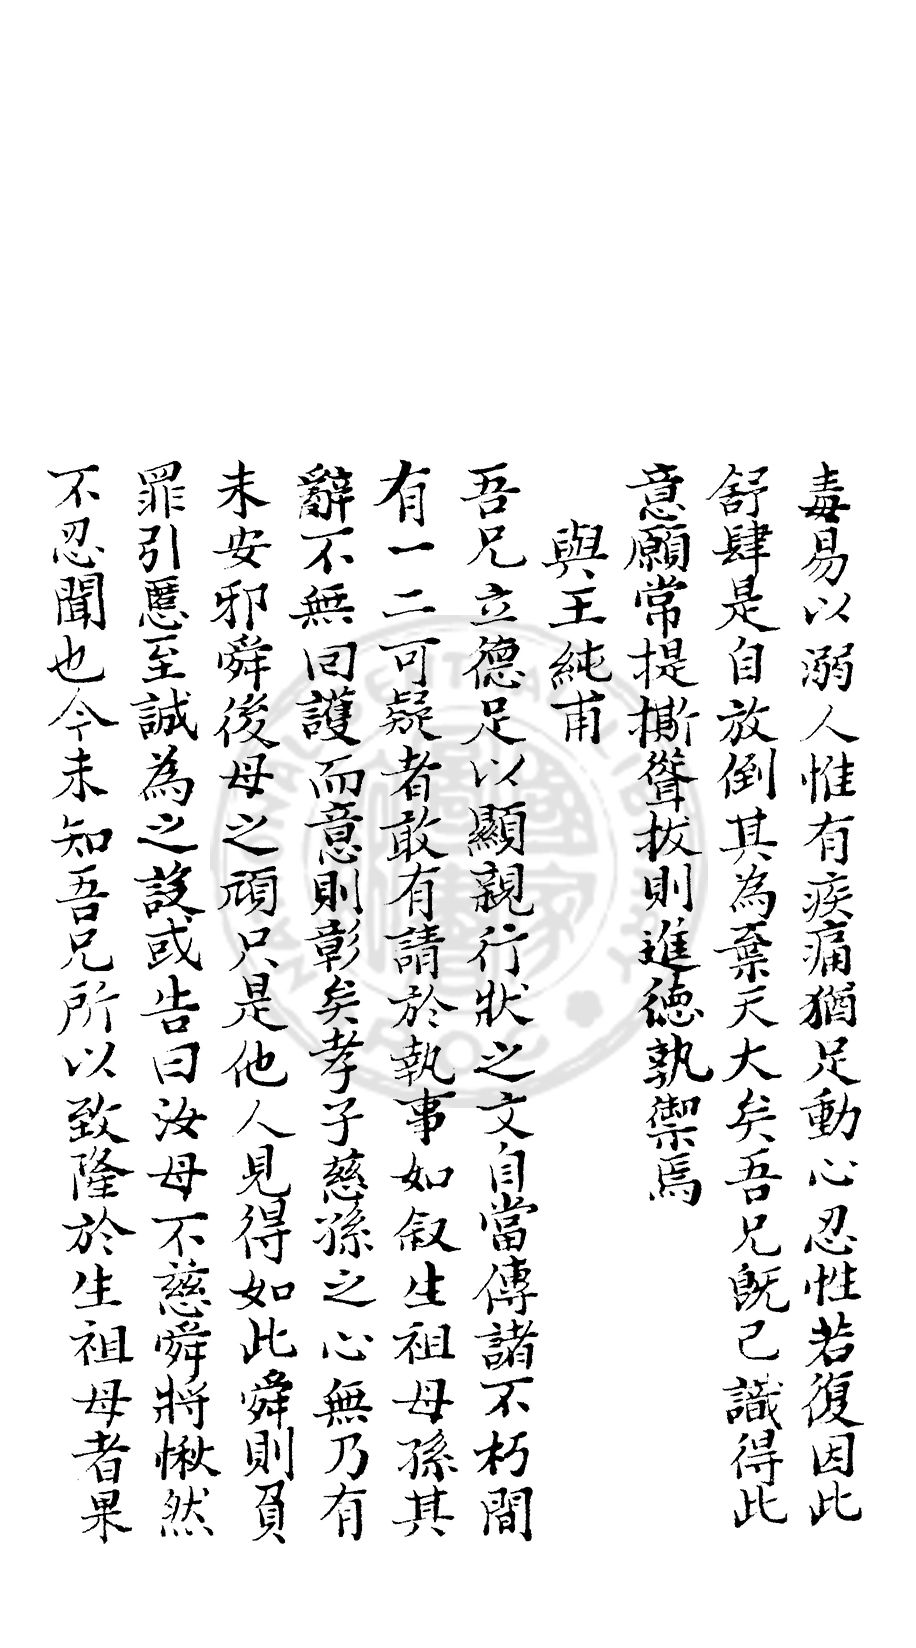 毒易以溺人惟有疾痛猶足動心忍性若復因此
舒肆是自放倒其為棄天大矣吾兄既已識得此
意願常提撕聳拔則進德孰禦焉
與王純甫
吾兄立德足以顯親行狀之文自當傳諸不朽間
有一二可疑者敢有請於執事如叙生祖母孫其
辭不無回護而意則彰矣孝子慈孫之心無乃有
未安邪舜後母之頑只是他人見得如此舜則負
罪引慝至誠為之設或告曰汝母不慈舜將愀然
不忍聞也今未知吾兄所以致隆於生祖母者果